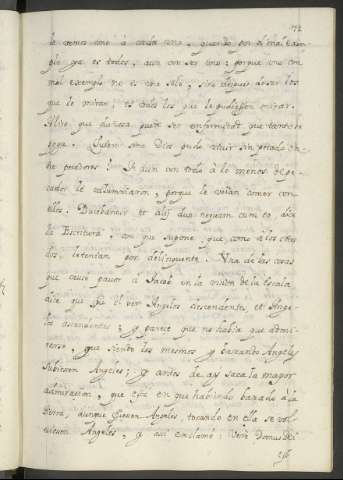 72
le vemos uno à cada uno, quando por el mal exem
plo ya es todos, aun con ser uno; porque uno con
mal exemplo no es uno solo, sino despues de ser los
que le miran; es todos los que le pudiessen mirar.
Mire que dañosa puede ser enfermedad, que tanto se
pega. Quien sino Dios pudo vivir sin pecado en-
tre pecadores? Y aun con todo à lo menos de pe-
cador le calumniaron, porque le veìan comer con
ellos. Ducebantur et alij duo nequam cum eo dice
la Escritura, con que supone, que como à los otros
dos, le tenían por delinquente. Una de las cosas
que causo pavor à Jacob en la vision de la Escala
dice que fue el ver Angeles descendentes, et Ange-
los ascendentes; y parece que no habia que admi-
rarse, que siendo los mesmos y baxando Angeles
subiesen Angeles; y antes de ay saca la mayor
admiracion, que esta en que habiendo baxado à la
tierra, aunque fuesen Angeles, tocando en ella se vol-
viesen Angeles, y assi exclamò: Vere Domus Dei
est